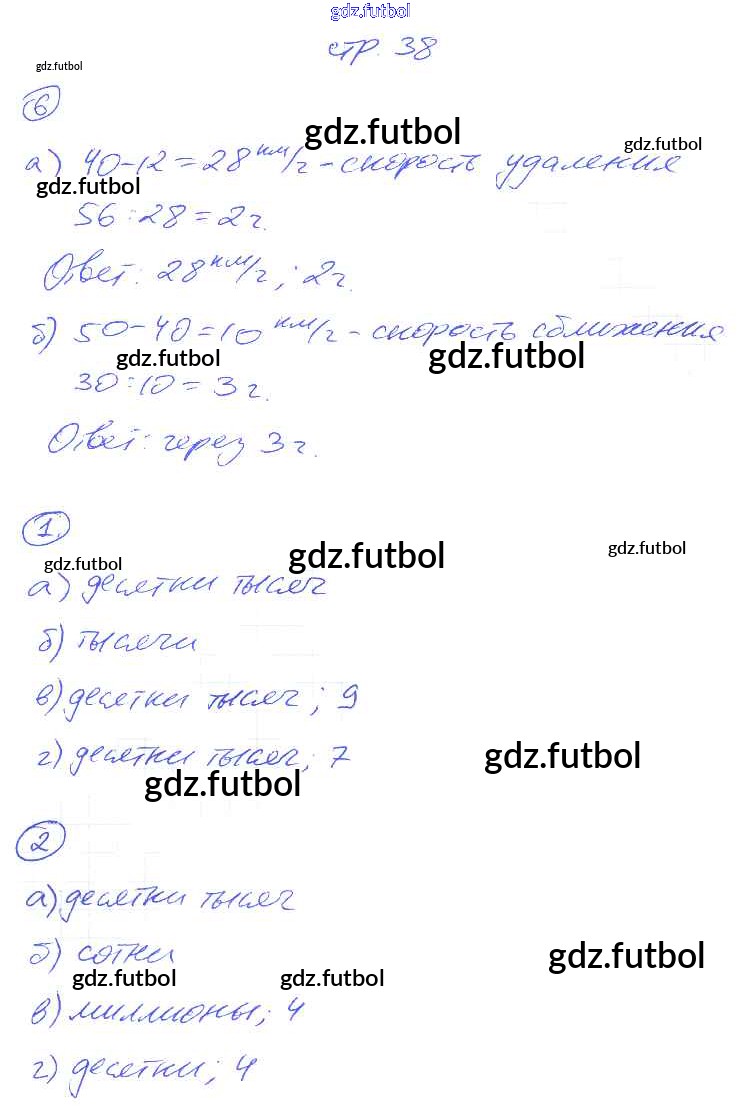 gdz.futbol
стр. 38
gdz.futbol
6
gdz.futbol
gdz.futbol
а) 40-12=28 км/г - скорость удаления
gdz.futbol
56:28=2г.
Ответ: 28 км/г; 2г.
б) 50-40=10 км/г - скорость сближения
gdz.futbol
gdz.futbol
30:10=3г.
Ответ: через 3г.
1.
gdz.futbol
gdz.futbol
gdz.futbol
а) десятки тысяч
б) тысячи
в) десятки тысяч; 9
г) десятки тысяч; 7
gdz.futbol
gdz.futbol
2
а) десятки тысяч
б) сотни
gdz.futbol
gdz.futbol
gdz.futbol
в) миллионы; 4
г) десятки; 4